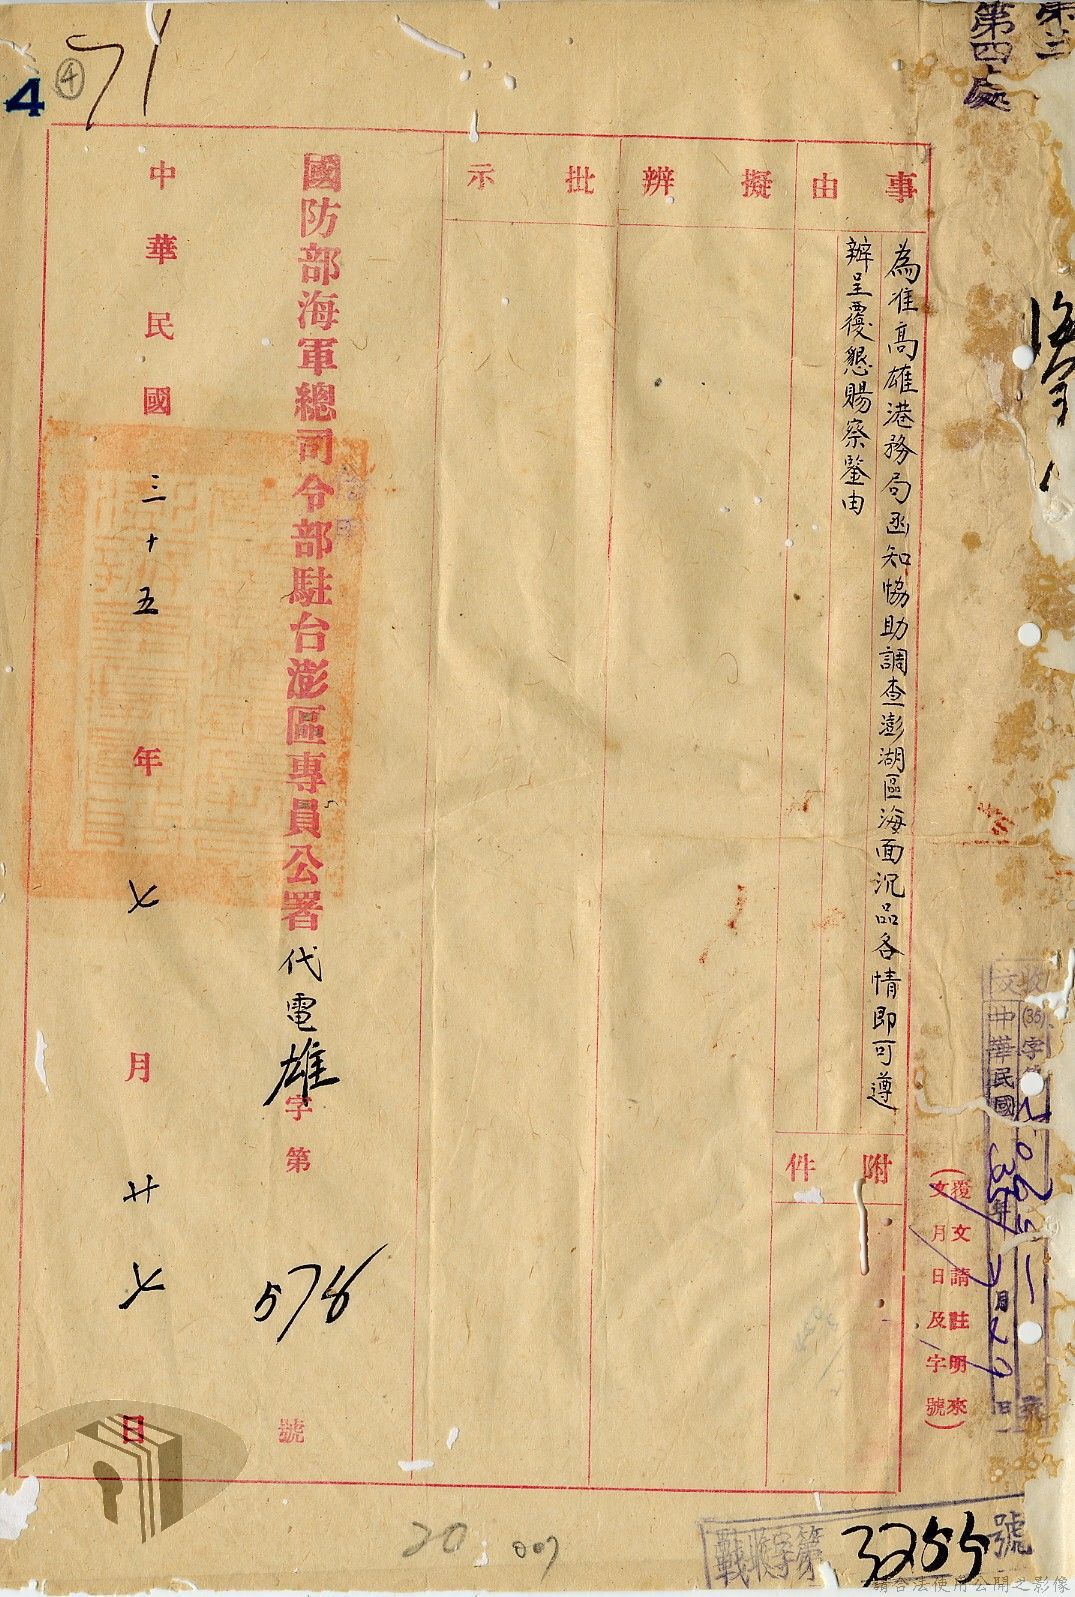 第三
第四處
事由
擬辦
批示
為准高雄港務局函知協助調查澎湖區海面沉品各情即可遵
辦呈覆懇賜察鑒由
附件
(覆文請註明來
文月日及字號)
中華民國35年 月 日
國防部海軍總司令部駐台澎區專員公署代電雄字第578號
中華民國三十五年七月廿七日
戰收字第3255號
4
④
71
20
007
請合法使用公開之影像